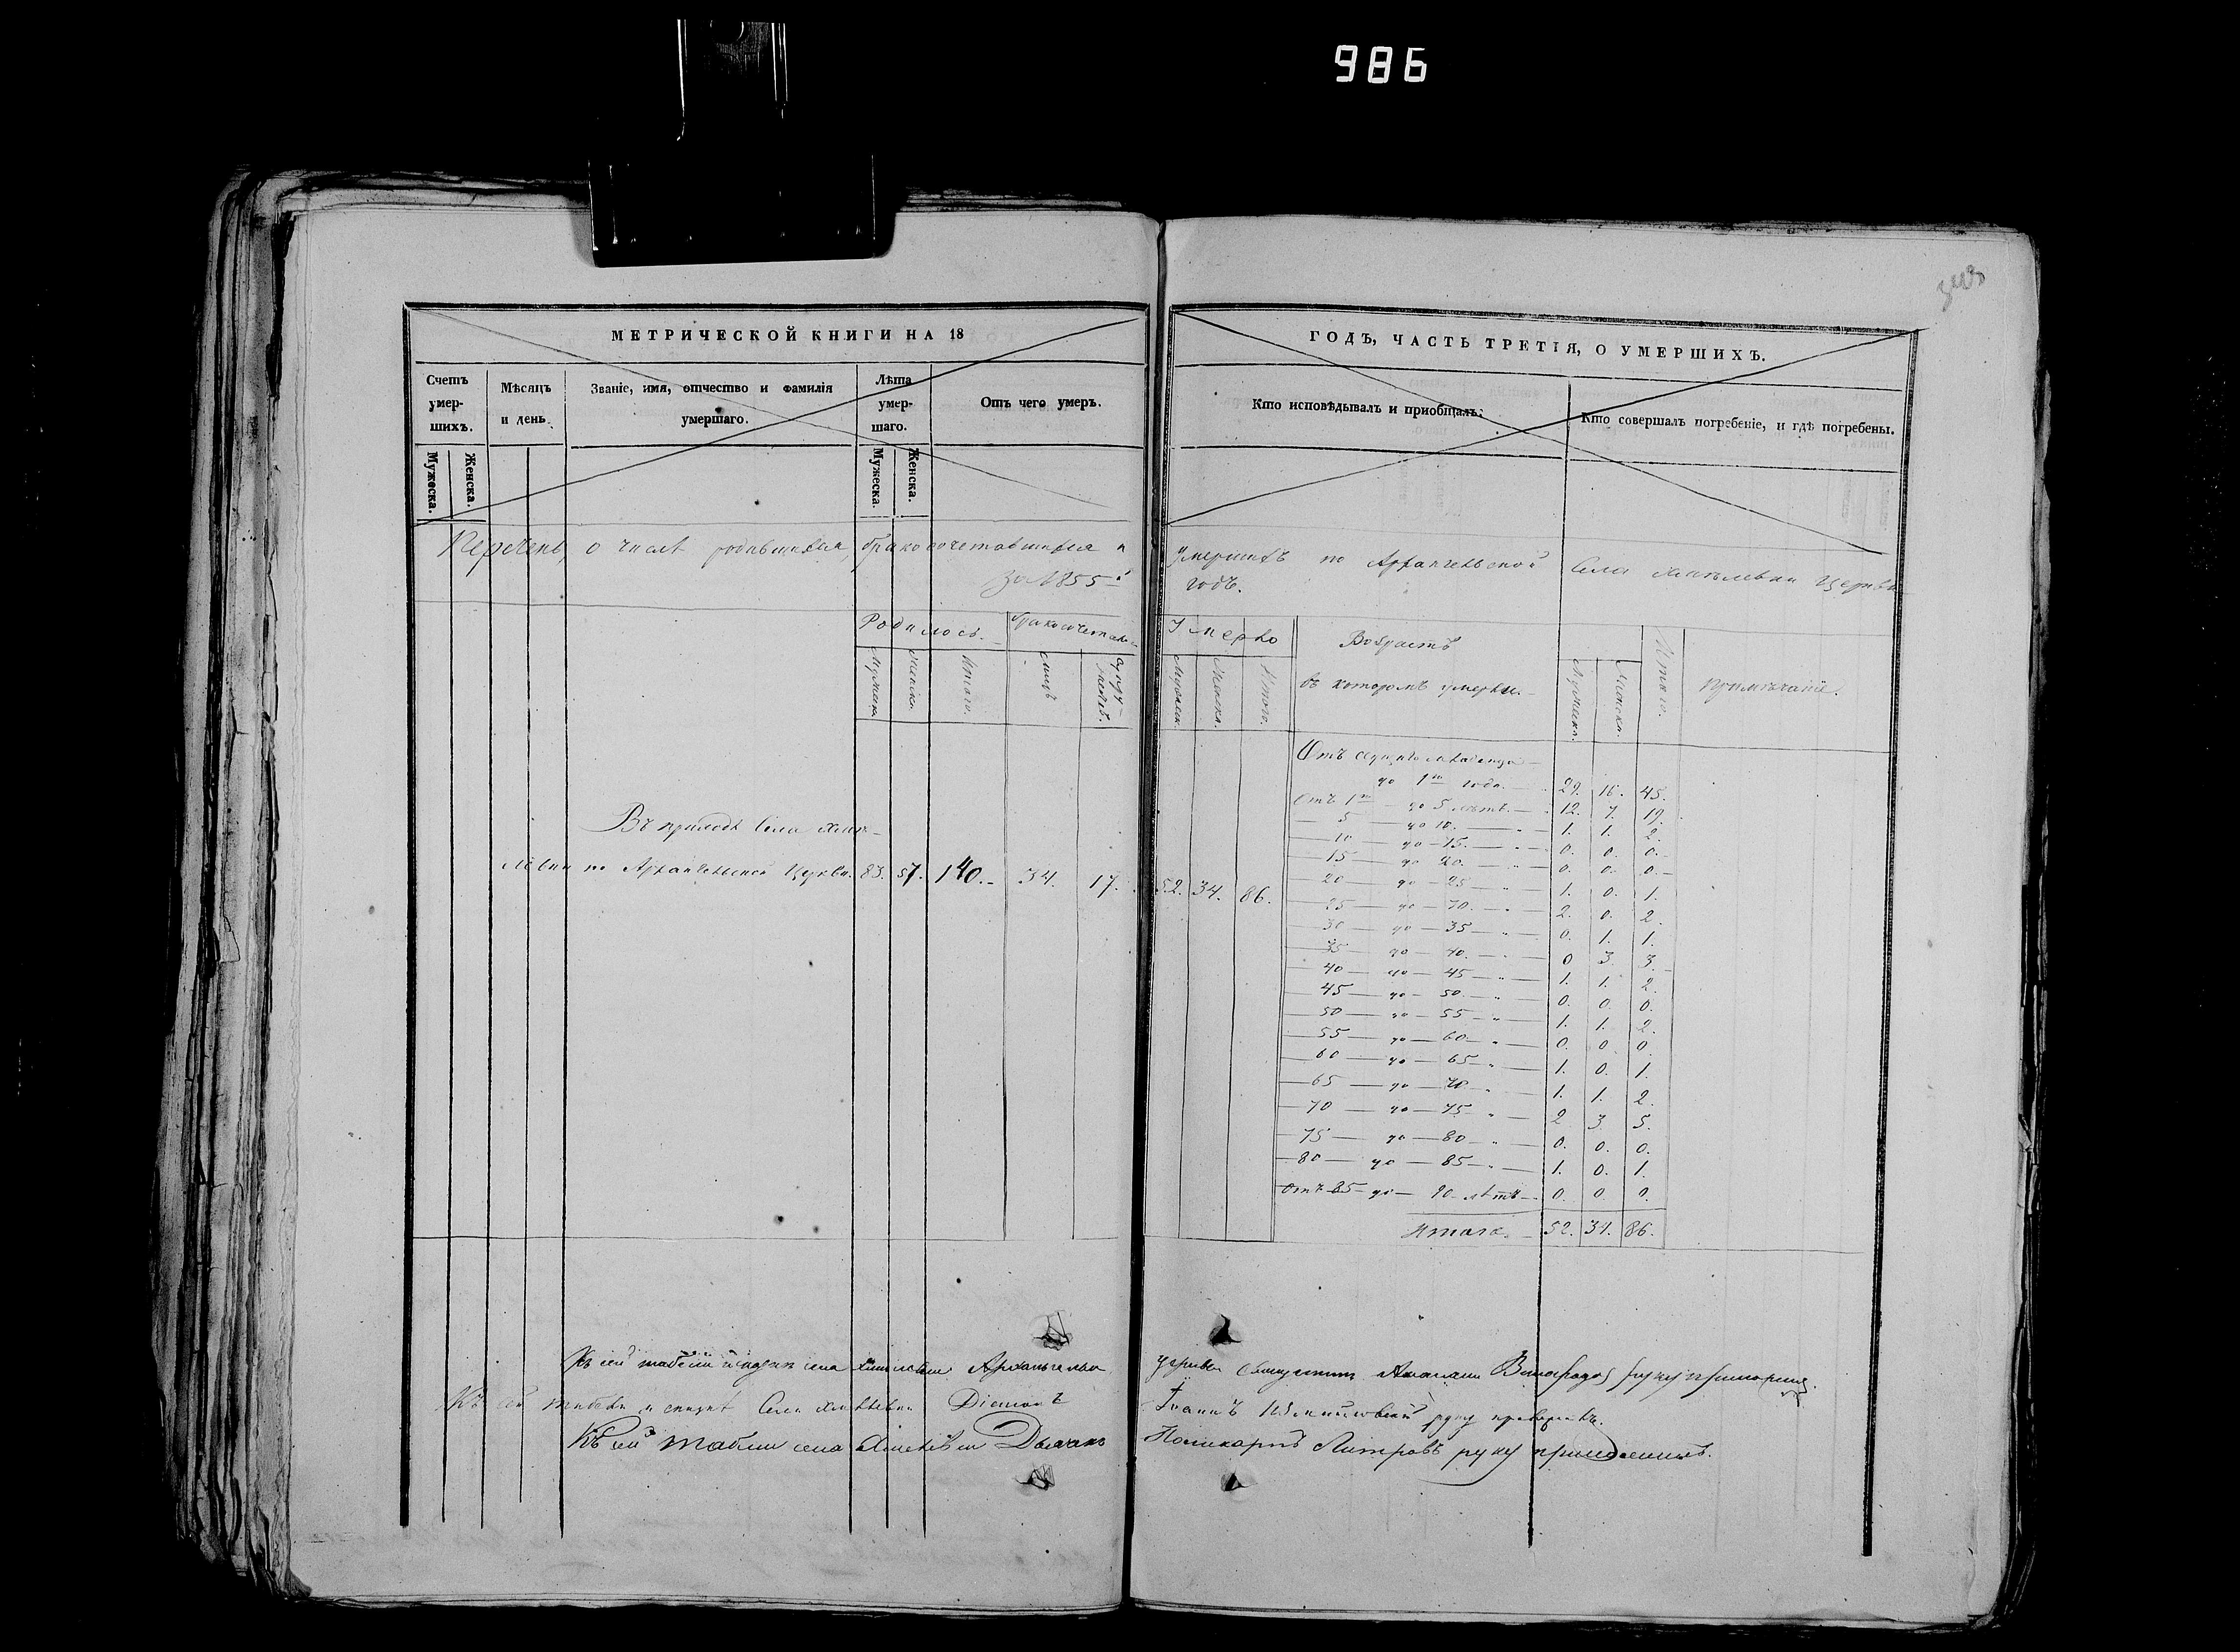 986
МЕТРИЧЕСКОЙ КНИГИ НА 18
ГОДЪ, ЧАСТЬ ТРЕТІЯ, О УМЕРШИХЪ.
Счетъ умер-шихъ.
Мѣсяцъ и день.
Званіе, имя, отчество и фамилія умершаго.
Лѣта умер-шаго.
Отъ чего умеръ.
Кто исповѣдывалъ и пріобщалъ.
Кто совершалъ погребеніе, и гдѣ погребены.
Мужеска.
Женска.
Мужеска.
Женска.
Перечень, о числѣ родившихся, бракосочетавшихся и умершихъ по Архангельской Села Хмѣлевки Церкви
за 1855й годъ.
Родилось.
Умерло
Возрастъ
въ которомъ умерли.
Мужеска.
Женска.
Итого.
лицъ
Мужеска.
Женска.
Итого.
Мужеска.
Женска.
Итого.
Примѣчаніе.
Въ приходѣ Села Хмѣ-
левки по Архангельской Церкви. 83. 57. 140. 34. 17. 52. 34. 86.
Отъ младенца
до 1го года. 29. 16. 45.
Отъ 1го до 5 лѣтъ. 12. 7. 19.
5 до 10. 1. 1. 2.
10 до 15. 0. 0. 0.
15 до 20. 0. 0. 0.
20 до 25 1. 0. 1.
25 до 30. 2. 0. 2.
30 до 35 0. 1. 1.
35 до 40. 0 3. 3.
40 до 45 1. 1. 2.
45 до 50. 0. 0. 0.
50 до 55 1. 1. 2.
55 до 60 0. 0. 0.
60 до 65 1. 0. 1.
65 до 70 1. 1. 2.
70 до 75 2 3. 5.
75 до 80 0. 0. 0.
80 до 85 1. 0. 1.
Отъ 85 до 90 лѣтъ 0. 0. 0.
Итого. 52. 34. 86.
Къ сей табели села Архангельской церкви Виноградов руку приложилъ.
Къ сей табели Села Хмѣлевки Діаконъ Іоаннъ руку
Къ сей табели села Хмѣлевки Дьячокъ Поликарпъ Петровъ руку приложилъ.